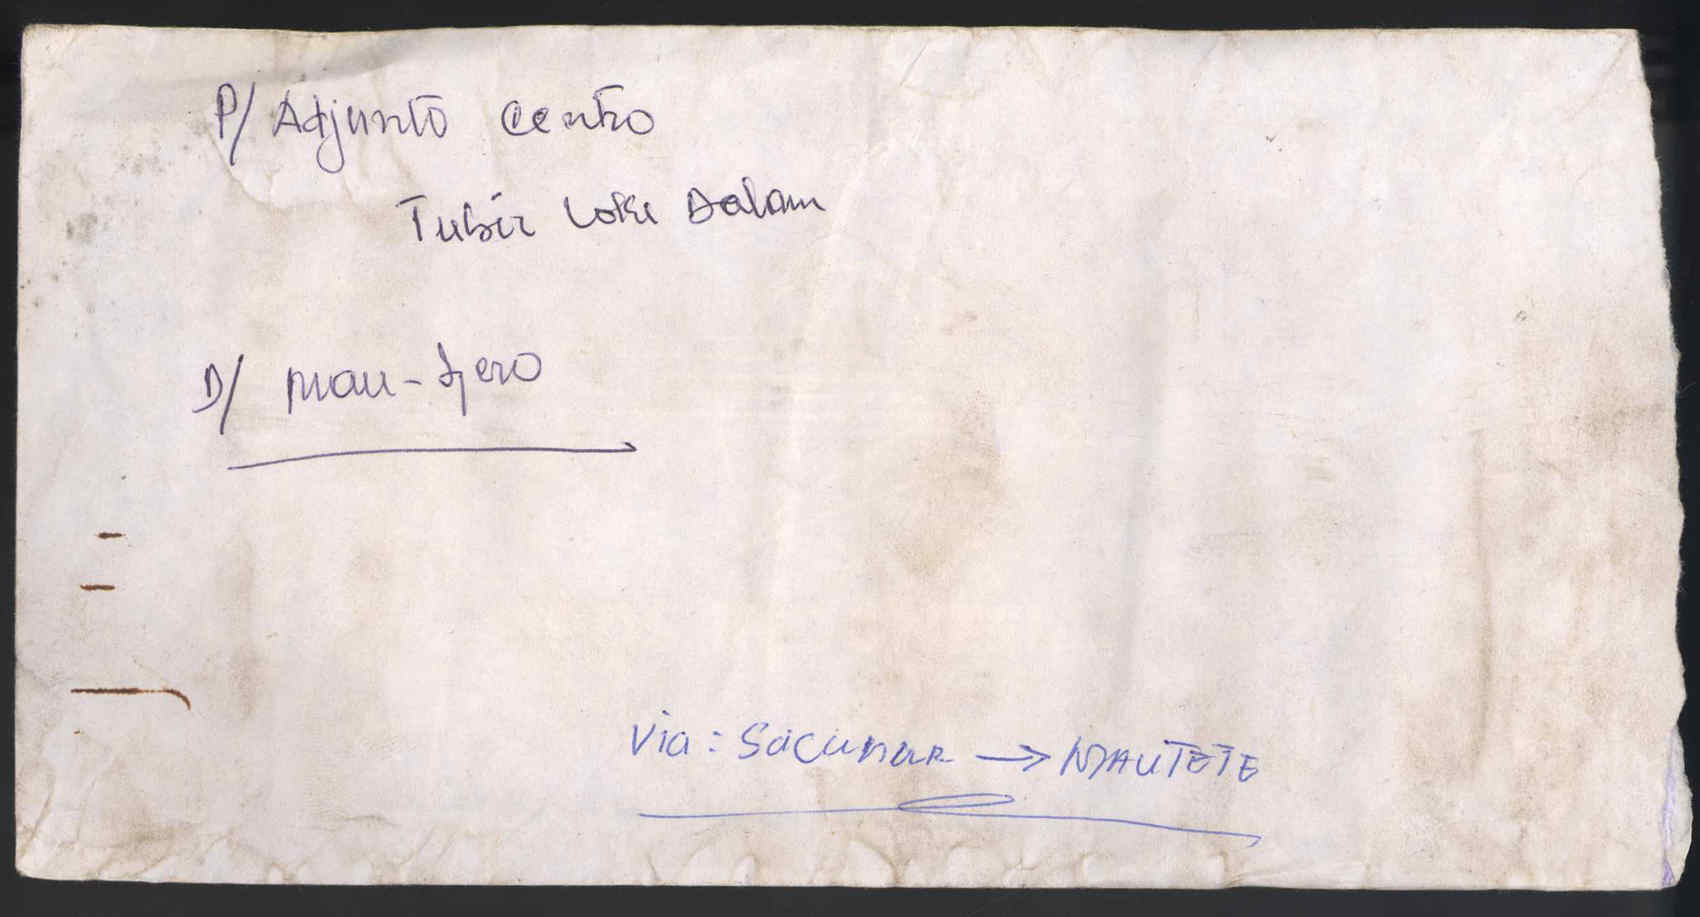 P/ Adjunto Centro
Tubir Loke Dalam
D/ Mau-Fjero
Via: Sacunar → MAUTETE